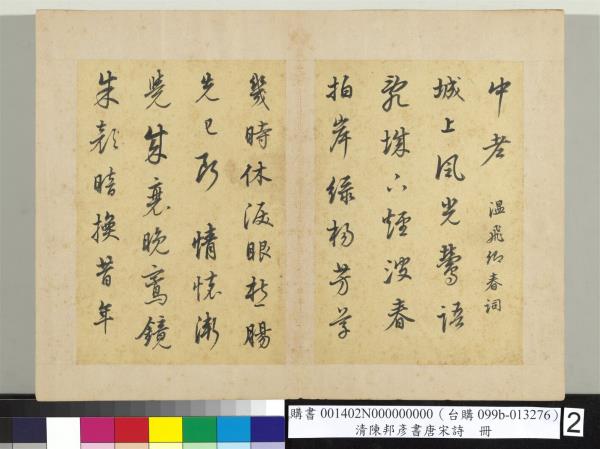 中老 温飛卿春詞
城上風光鶯語
亂城下煙波春
拍岸綠楊芳草
幾時休淚眼愁腸
先已斷 情懷漸
覺成衰晚鸞鏡
朱顏暗換昔年
購書 001402N000000000 (台購 099b-013276)
清陳邦彥書唐宋詩 冊
2